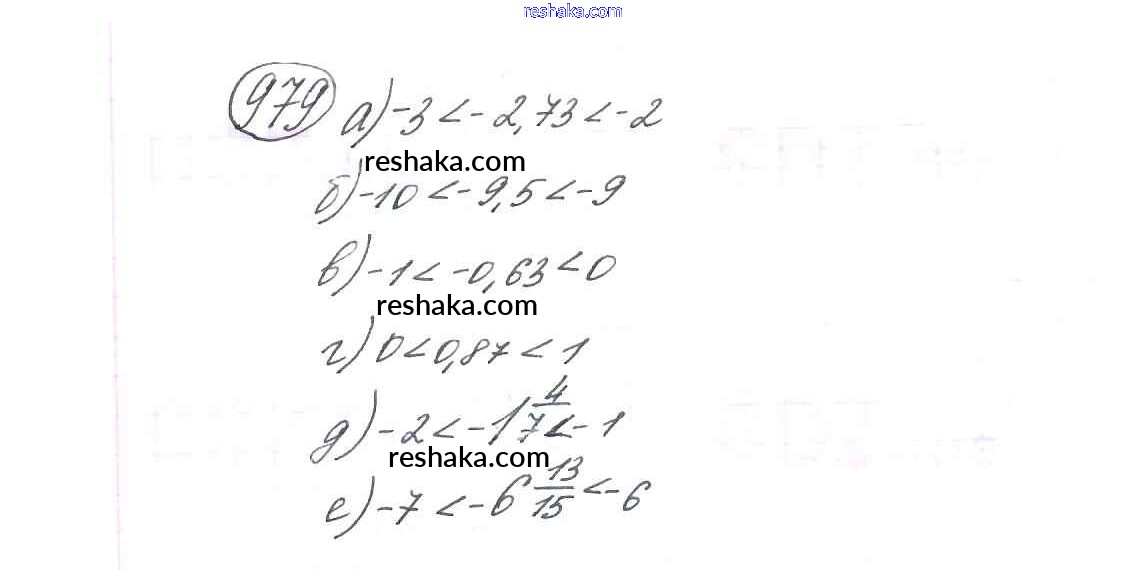 reshaka.com
979 а) -3 < -2,73 < -2
reshaka.com
б) -10 < -9,5 < -9
в) -1 < -0,63 < 0
reshaka.com
г) 0 < 0,87 < 1
д) -2 < -1 4/7 < -1
reshaka.com
е) -7 < -6 13/15 < -6